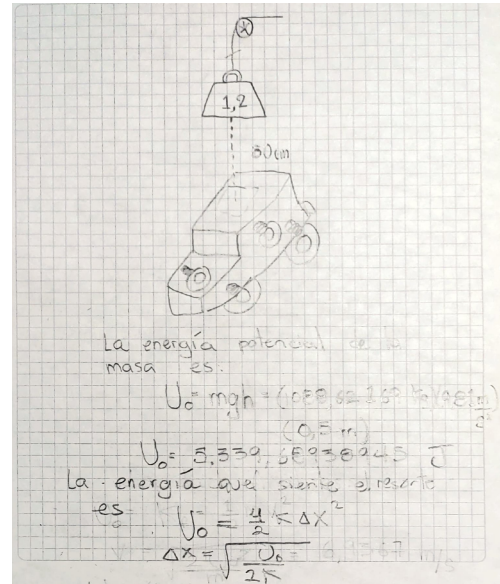 1,2
80cm
La energía potencial de la
masa es.
U₀ = mgh =
(0,5 m)
U₀ = 5.339 J
La energía que siente el resorte
es U₀ = 4/2 K ΔX²
ΔX = √(U₀/2K) = m/s